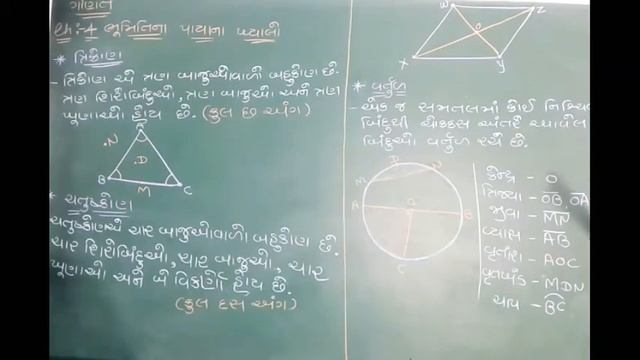 ગણિત
Ch:-4 ભૂમિતિના પાયાના ખ્યાલો
* ત્રિકોણ
- ત્રિકોણ એ ત્રણ બાજુઓવાળો બહુકોણ છે.
ત્રણ શિરોબિંદુઓ, ત્રણ બાજુઓ અને ત્રણ
ખૂણાઓ હોય છે. (કુલ છ અંગ)
A
N
D
B
M
C
* ચતુષ્કોણ
ચતુષ્કોણએ ચાર બાજુઓવાળો બહુકોણ છે.
ચાર શિરોબિંદુઓ, ચાર બાજુઓ, ચાર
ખૂણાઓ અને બે વિકર્ણો હોય છે.
(કુલ દસ અંગ)
W
Z
O
X
Y
* વર્તુળ
- એક જ સમતલમાં કોઈ
બિંદુથી ચોક્કસ અંતરે આવેલ
બિંદુઓ વર્તુળ રચે છે.
D
N
M
A
O
B
C
કેન્દ્ર - O
ત્રિજ્યા - OB, OA
જીવા - MN
વ્યાસ - AB
વૃતાંશ - AOC
વૃતખંડ - MDN
ચાપ - BC